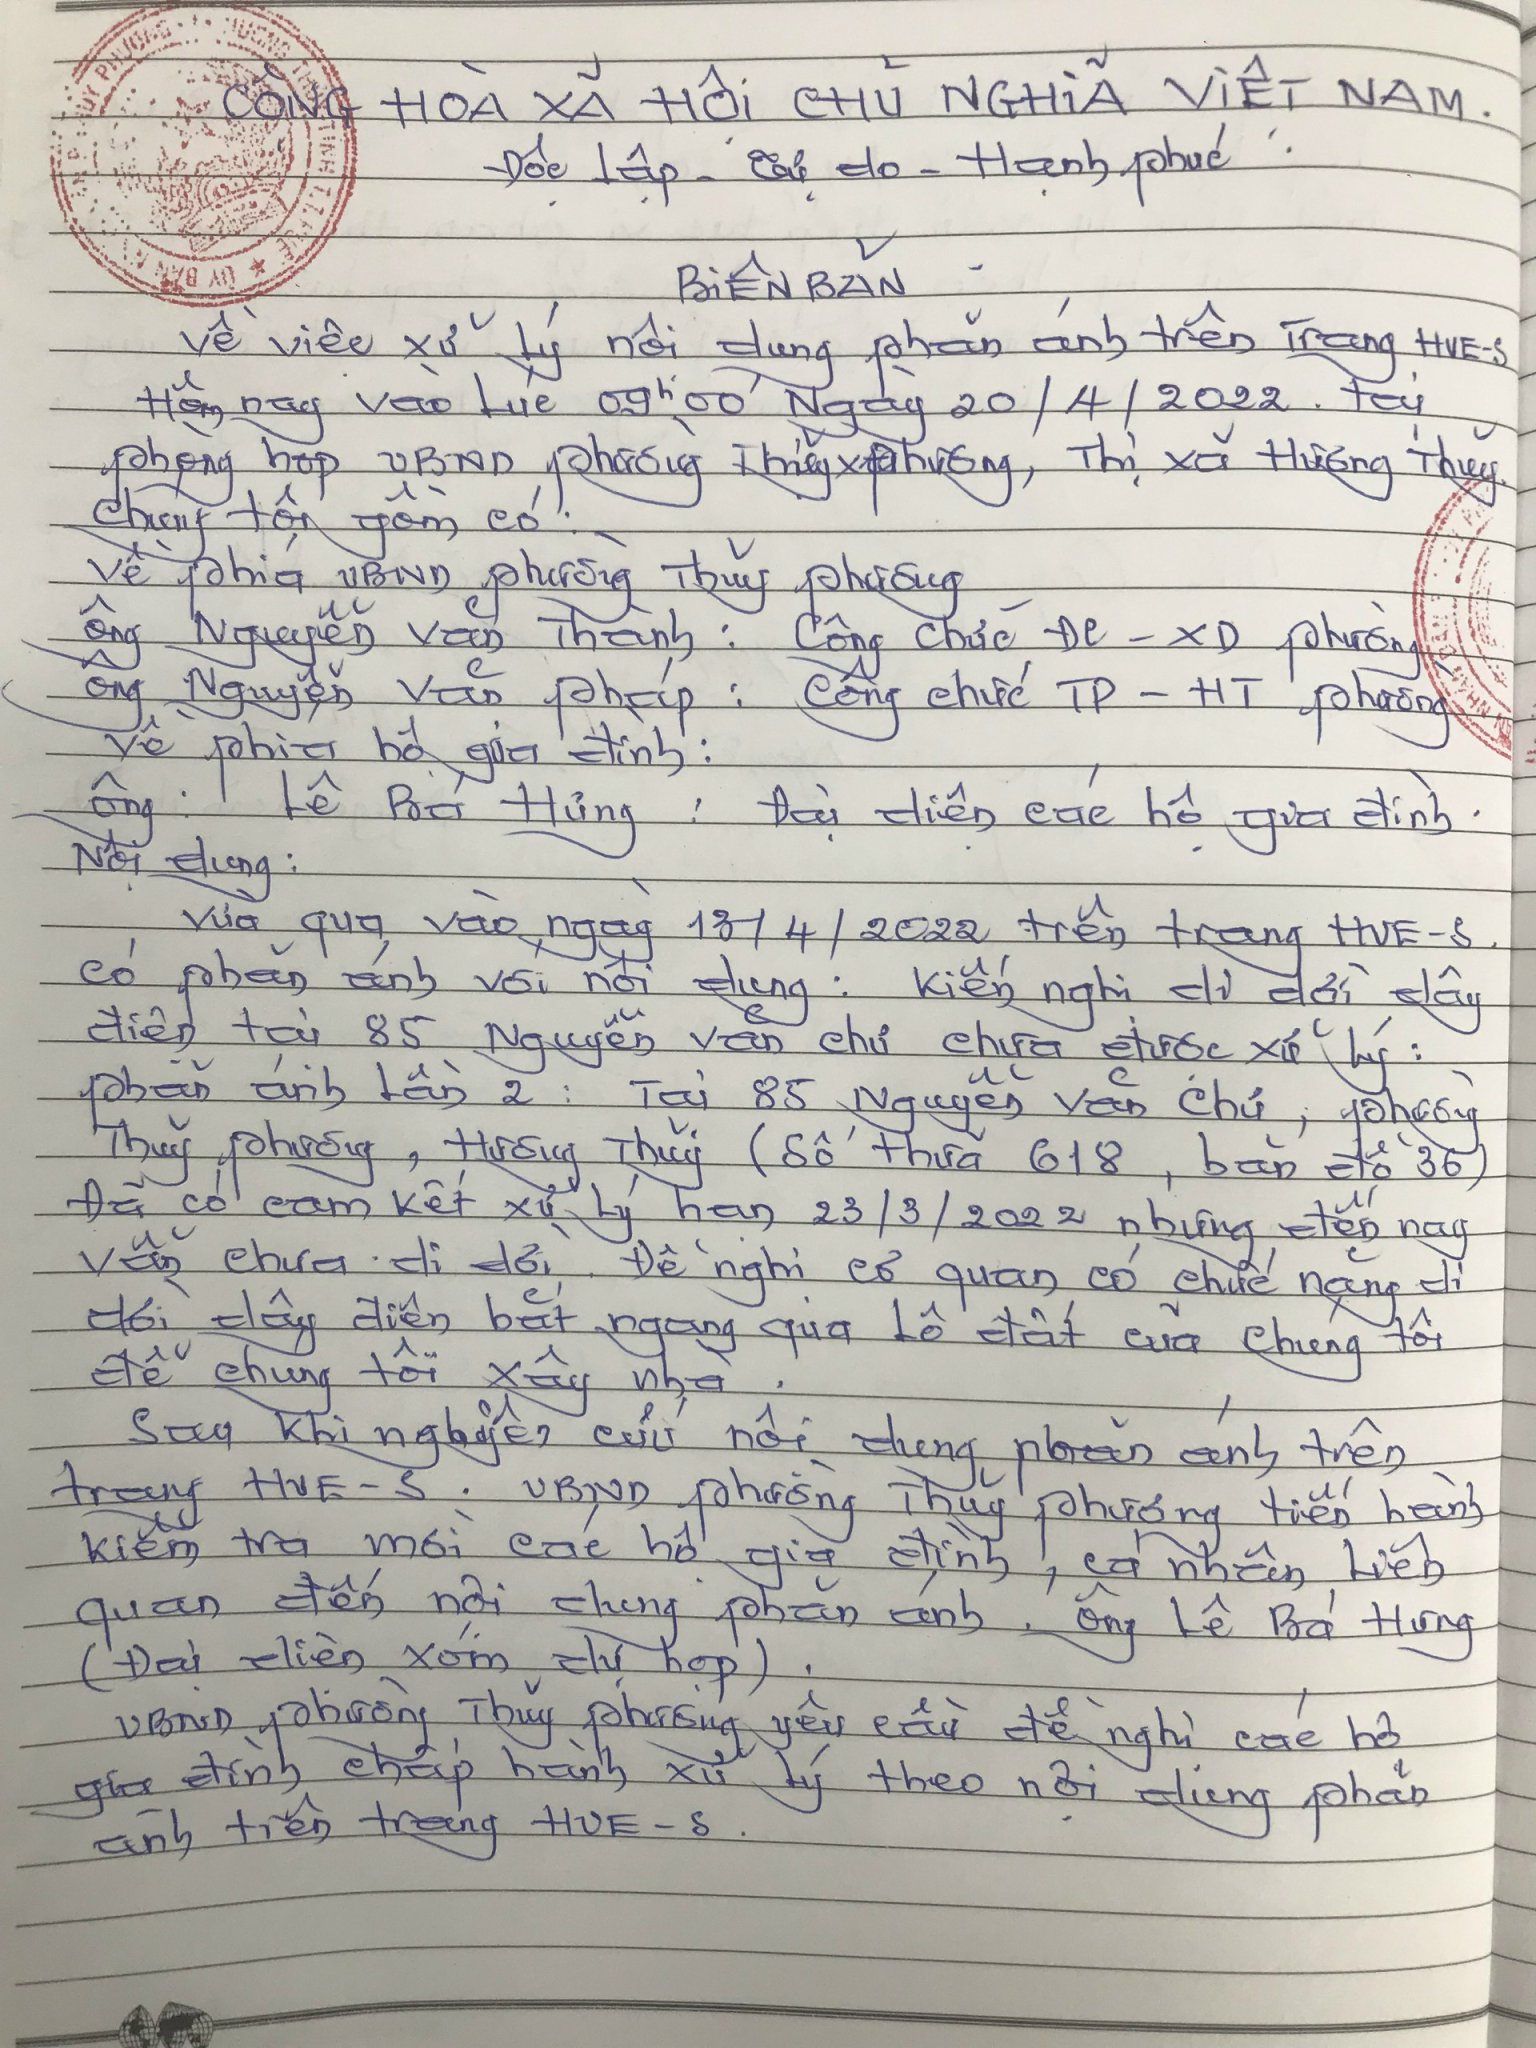 CỘNG HÒA XÃ HỘI CHỦ NGHĨA VIỆT NAM.
Độc lập - Tự do - Hạnh phúc
BIÊN BẢN
Về việc xử lý nội dung phản ánh trên Trang HUE-S
Hôm nay vào lúc 09h00 Ngày 20/4/2022. tại
phòng họp UBND phường Thủy Phương, Thị xã Hương Thủy.
Chúng tôi gồm có:
Về phía UBND phường Thủy phương
Ông Nguyễn Văn Thành: Công chức ĐC - XD phường
Ông Nguyễn Văn Pháp: Công chức TP - HT phường
Về phía hộ gia đình:
Ông: Lê Bá Hưng: Đại diện các hộ gia đình.
Nội dung:
Vừa qua vào ngày 13/4/2022 trên trang HUE-S.
có phản ánh với nội dung: Kiến nghị di dời dây
điện tại 85 Nguyễn Văn Chư chưa được xử lý:
phản ánh lần 2: Tại 85 Nguyễn Văn Chư, phường
Thủy phương, Hương Thủy (Số thửa 618, bản đồ 36)
Đã có cam kết xử lý hạn 23/3/2022 nhưng đến nay
vẫn chưa di dời. Đề nghị cơ quan có chức năng di
dời dây điện bắt ngang qua lô đất của chúng tôi
để chúng tôi xây nhà.
Sau khi nghiên cứu nội dung phản ánh trên
trang HUE-S. UBND phường Thủy phương tiến hành
kiểm tra mời các hộ gia đình, cá nhân liên
quan đến nội dung phản ánh. Ông Lê Bá Hưng
(Đại diện xóm dự họp).
UBND phường Thủy phương yêu cầu đề nghị các hộ
gia đình chấp hành xử lý theo nội dung phản
ánh trên trang HUE-S.